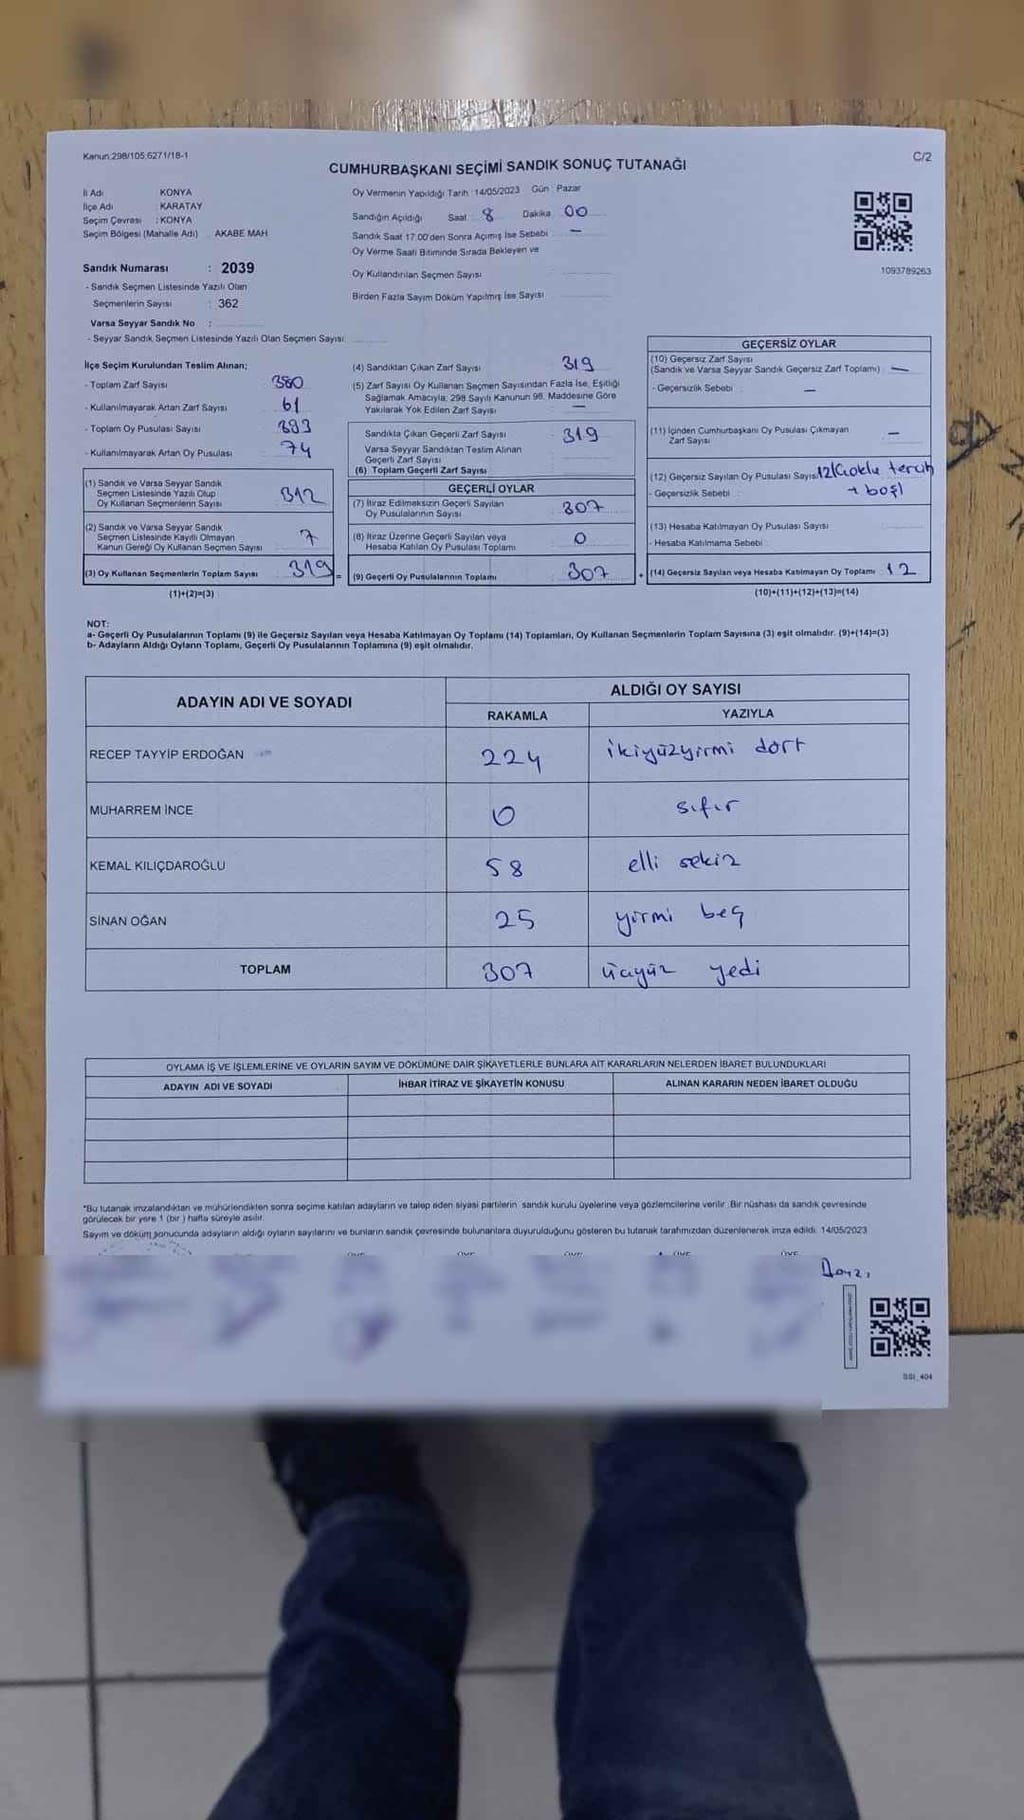 Kanun:298/105,6271/18-1
C/2
CUMHURBAŞKANI SEÇİMİ SANDIK SONUÇ TUTANAĞI
İl Adı : KONYA
İlçe Adı : KARATAY
Seçim Çevresi : KONYA
Seçim Bölgesi (Mahalle Adı) AKABE MAH
Sandık Numarası : 2039
- Sandık Seçmen Listesinde Yazılı Olan
Seçmenlerin Sayısı : 362
Varsa Seyyar Sandık No :
- Seyyar Sandık Seçmen Listesinde Yazılı Olan Seçmen Sayısı:
Oy Vermenin Yapıldığı Tarih : 14/05/2023 Gün : Pazar
Sandığın Açıldığı Saat : 8 Dakika : 00
Sandık Saat 17.00'den Sonra Açılmış İse Sebebi : —
Oy Verme Saati Bitiminde Sırada Bekleyen ve
Oy Kullandırılan Seçmen Sayısı
Birden Fazla Sayım Döküm Yapılmış İse Sayısı
1093789263
İlçe Seçim Kurulundan Teslim Alınan;
- Toplam Zarf Sayısı : 380
- Kullanılmayarak Artan Zarf Sayısı : 61
- Toplam Oy Pusulası Sayısı : 393
- Kullanılmayarak Artan Oy Pusulası : 74
(1) Sandık ve Varsa Seyyar Sandık
Seçmen Listesinde Yazılı Olup
Oy Kullanan Seçmenlerin Sayısı 312
(2) Sandık ve Varsa Seyyar Sandık
Seçmen Listesinde Kayıtlı Olmayan
Kanun Gereği Oy Kullanan Seçmen Sayısı 7
(3) Oy Kullanan Seçmenlerin Toplam Sayısı 319 =
(1)+(2)=(3)
(4) Sandıktan Çıkan Zarf Sayısı 319
(5) Zarf Sayısı Oy Kullanan Seçmen Sayısından Fazla İse, Eşitliği
Sağlamak Amacıyla, 298 Sayılı Kanunun 98. Maddesine Göre
Yakılarak Yok Edilen Zarf Sayısı —
Sandıkta Çıkan Geçerli Zarf Sayısı : 319
Varsa Seyyar Sandıktan Teslim Alınan
Geçerli Zarf Sayısı
(6) Toplam Geçerli Zarf Sayısı
GEÇERLİ OYLAR
(7) İtiraz Edilmeksizin Geçerli Sayılan
Oy Pusulalarının Sayısı 307
(8) İtiraz Üzerine Geçerli Sayılan veya
Hesaba Katılan Oy Pusulası Toplamı 0
(9) Geçerli Oy Pusulalarının Toplamı 307 +
GEÇERSİZ OYLAR
(10) Geçersiz Zarf Sayısı
(Sandık ve Varsa Seyyar Sandık Geçersiz Zarf Toplamı) : —
- Geçersizlik Sebebi : —
(11) İçinden Cumhurbaşkanı Oy Pusulası Çıkmayan
Zarf Sayısı —
(12) Geçersiz Sayılan Oy Pusulası Sayısı 12 (Çoklu tercih
- Geçersizlik Sebebi : + boş)
(13) Hesaba Katılmayan Oy Pusulası Sayısı
- Hesaba Katılmama Sebebi :
(14) Geçersiz Sayılan veya Hesaba Katılmayan Oy Toplamı 12
(10)+(11)+(12)+(13)=(14)
NOT:
a- Geçerli Oy Pusulalarının Toplamı (9) ile Geçersiz Sayılan veya Hesaba Katılmayan Oy Toplamı (14) Toplamları, Oy Kullanan Seçmenlerin Toplam Sayısına (3) eşit olmalıdır. (9)+(14)=(3)
b- Adayların Aldığı Oyların Toplamı, Geçerli Oy Pusulalarının Toplamına (9) eşit olmalıdır.
ADAYIN ADI VE SOYADI ALDIĞI OY SAYISI
RAKAMLA YAZIYLA
RECEP TAYYİP ERDOĞAN 224 ikiyüzyirmi dört
MUHARREM İNCE 0 sıfır
KEMAL KILIÇDAROĞLU 58 elli sekiz
SİNAN OĞAN 25 yirmi beş
TOPLAM 307 üçyüz yedi
OYLAMA İŞ VE İŞLEMLERİNE VE OYLARIN SAYIM VE DÖKÜMÜNE DAİR ŞİKAYETLERLE BUNLARA AİT KARARLARIN NELERDEN İBARET BULUNDUKLARI
ADAYIN ADI VE SOYADI İHBAR İTİRAZ VE ŞİKAYETİN KONUSU ALINAN KARARIN NEDEN İBARET OLDUĞU
*Bu tutanak imzalandıktan ve mühürlendikten sonra seçime katılan adayların ve talep eden siyasi partilerin sandık kurulu üyelerine veya gözlemcilerine verilir. Bir nüshası da sandık çevresinde
görülecek bir yere 1 (bir) hafta süreyle asılır.
Sayım ve döküm sonucunda adayların aldığı oyların sayılarını ve bunların sandık çevresinde bulunanlara duyurulduğunu gösteren bu tutanak tarafımızdan düzenlenerek imza edildi. 14/05/2023